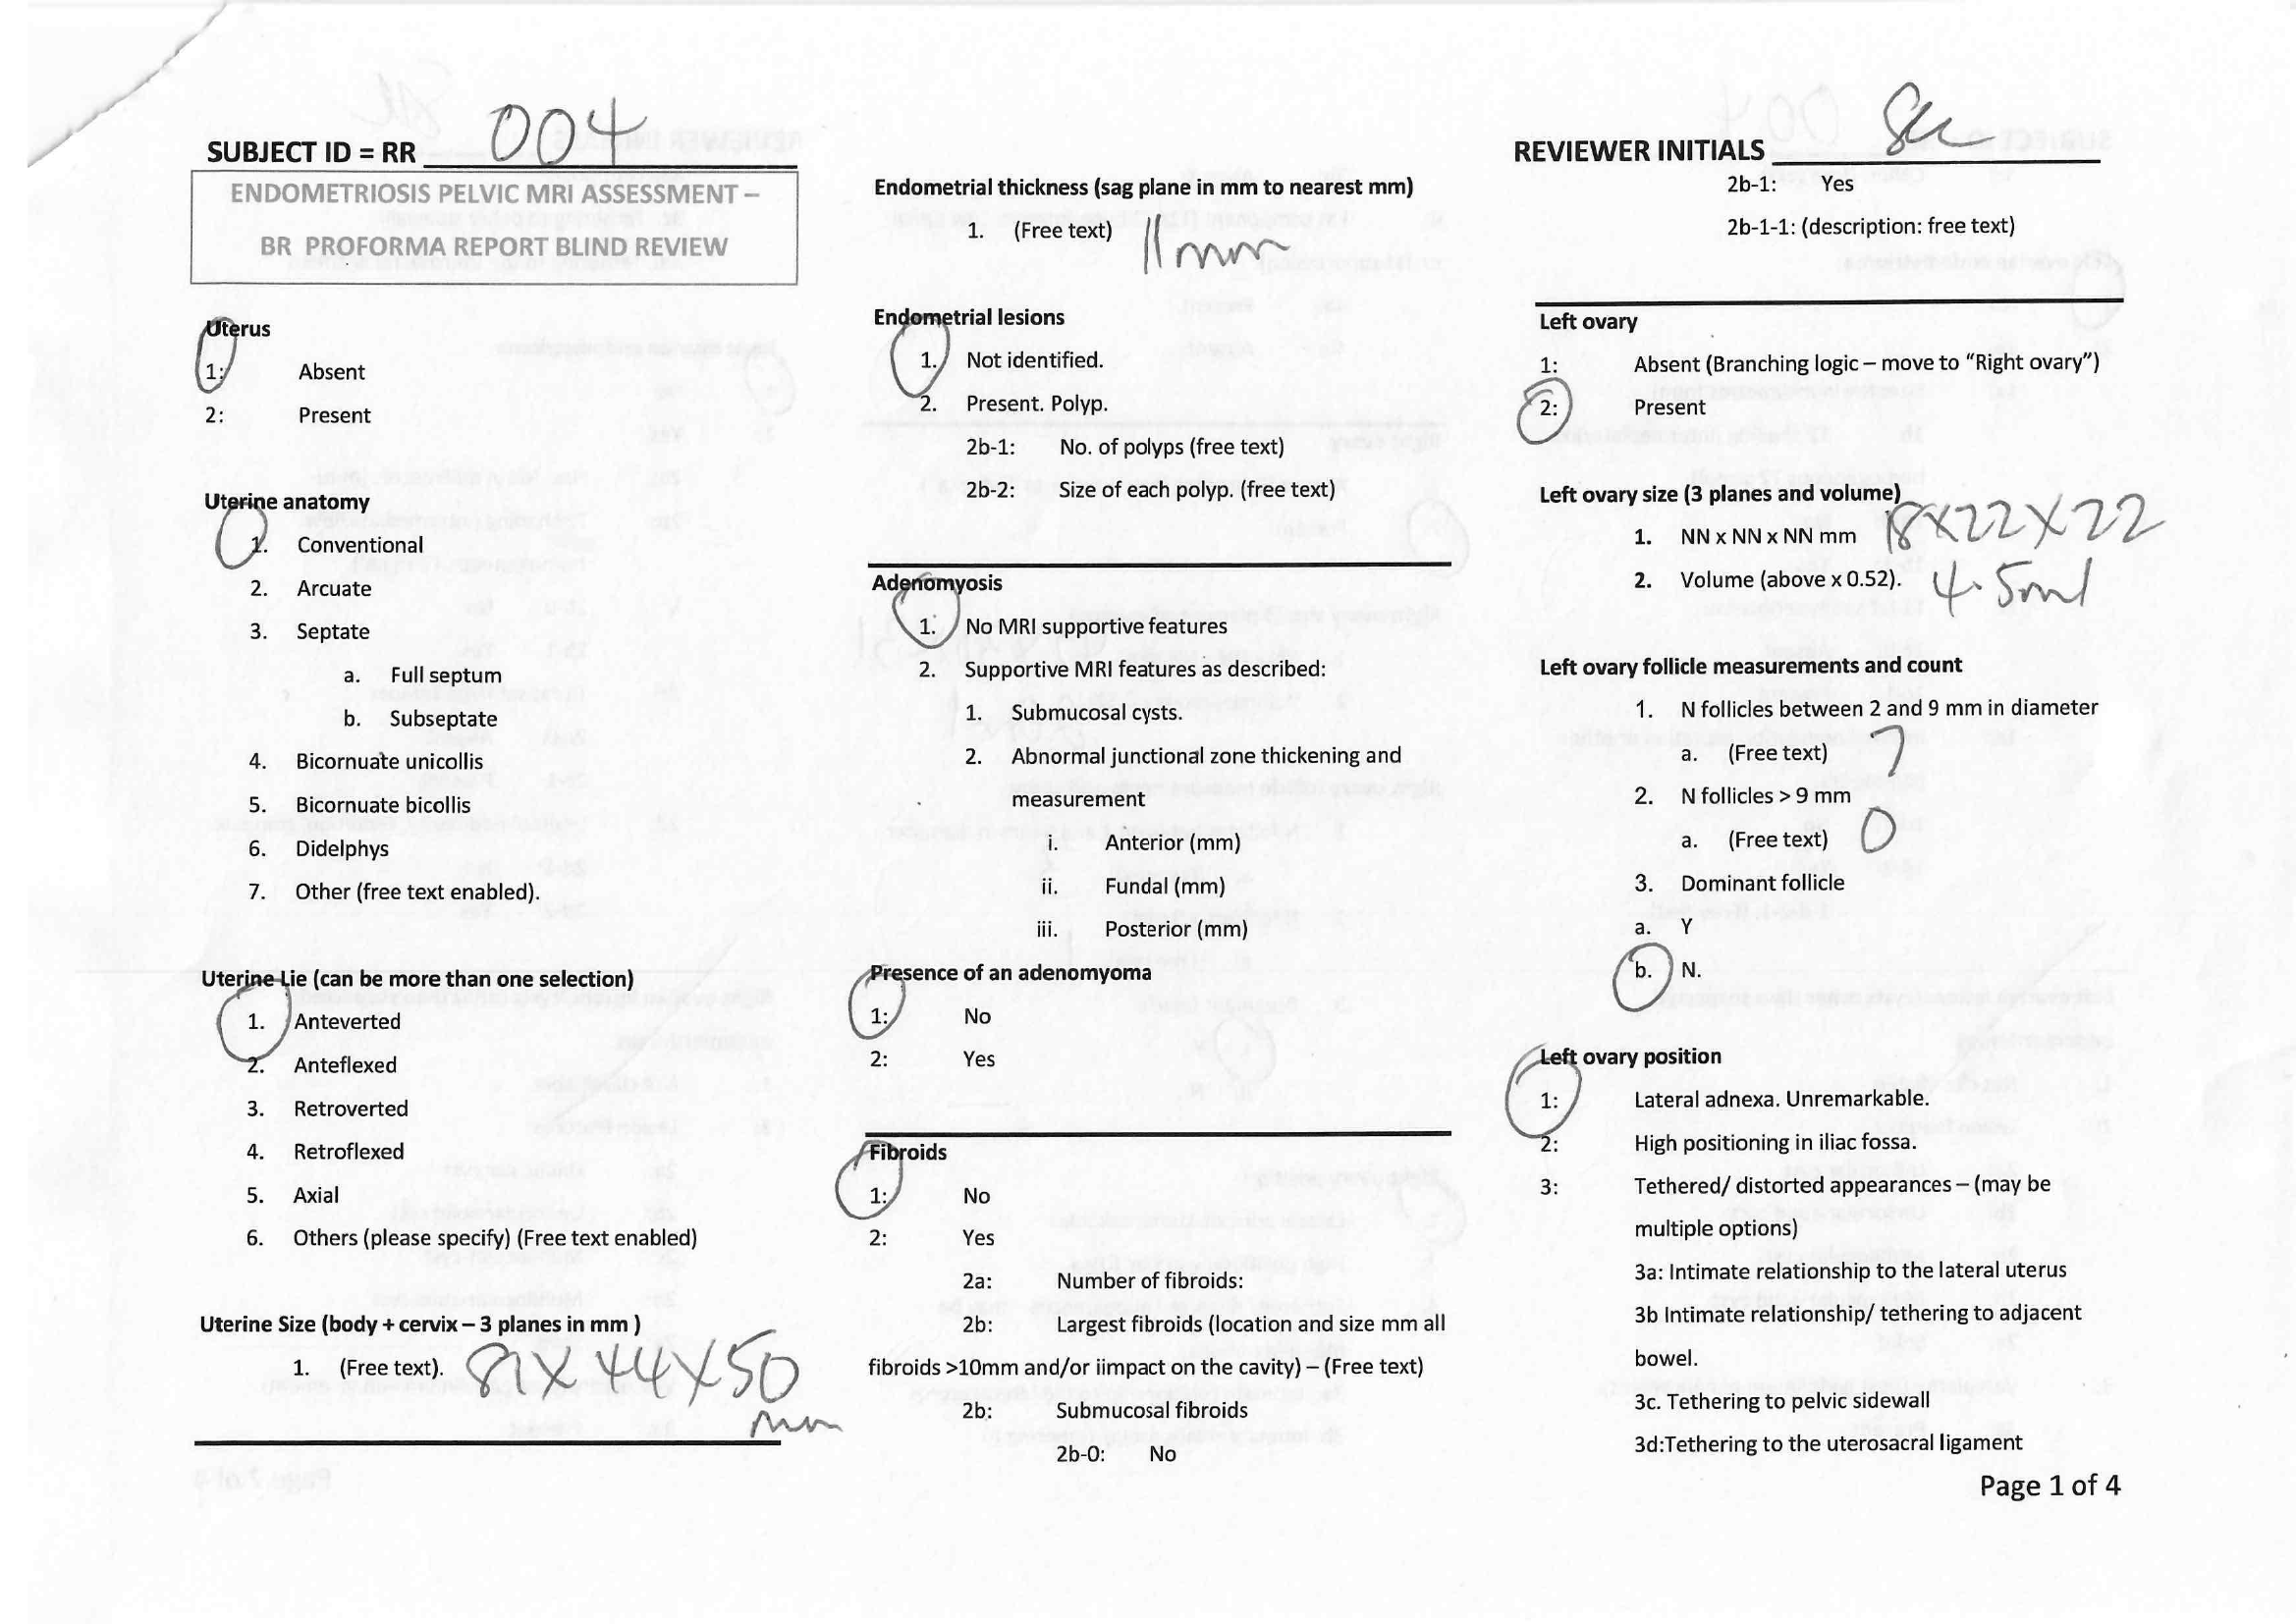 SUBJECT ID = RR 004
ENDOMETRIOSIS PELVIC MRI ASSESSMENT –
BR PROFORMA REPORT BLIND REVIEW
Uterus
1: Absent
2: Present
Uterine anatomy
1. Conventional
2. Arcuate
3. Septate
a. Full septum
b. Subseptate
4. Bicornuate unicollis
5. Bicornuate bicollis
6. Didelphys
7. Other (free text enabled).
Uterine Lie (can be more than one selection)
1. Anteverted
2. Anteflexed
3. Retroverted
4. Retroflexed
5. Axial
6. Others (please specify) (Free text enabled)
Uterine Size (body + cervix – 3 planes in mm )
1. (Free text). 81 X 44 X 50
mm
Endometrial thickness (sag plane in mm to nearest mm)
1. (Free text) 11mm
Endometrial lesions
1. Not identified.
2. Present. Polyp.
2b-1: No. of polyps (free text)
2b-2: Size of each polyp. (free text)
Adenomyosis
1. No MRI supportive features
2. Supportive MRI features as described:
1. Submucosal cysts.
2. Abnormal junctional zone thickening and
measurement
i. Anterior (mm)
ii. Fundal (mm)
iii. Posterior (mm)
Presence of an adenomyoma
1: No
2: Yes
Fibroids
1: No
2: Yes
2a: Number of fibroids:
2b: Largest fibroids (location and size mm all
fibroids >10mm and/or iimpact on the cavity) – (Free text)
2b: Submucosal fibroids
2b-0: No
REVIEWER INITIALS
2b-1: Yes
2b-1-1: (description: free text)
Left ovary
1: Absent (Branching logic – move to “Right ovary”)
2: Present
Left ovary size (3 planes and volume)
1. NN x NN x NN mm 18X22X22
2. Volume (above x 0.52). 4.5ml
Left ovary follicle measurements and count
1. N follicles between 2 and 9 mm in diameter
a. (Free text) 7
2. N follicles > 9 mm
a. (Free text) 0
3. Dominant follicle
a. Y
b. N.
Left ovary position
1: Lateral adnexa. Unremarkable.
2: High positioning in iliac fossa.
3: Tethered/ distorted appearances – (may be
multiple options)
3a: Intimate relationship to the lateral uterus
3b Intimate relationship/ tethering to adjacent
bowel.
3c. Tethering to pelvic sidewall
3d:Tethering to the uterosacral ligament
Page 1 of 4